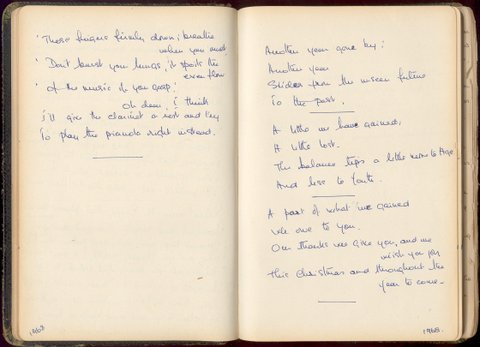 'Those fingers firmly down; breathe
when you must.
'Don't burst your lungs, it spoils the
even flow
'Of the music if you gasp:
Oh dear, I think
I'll give the clarinet a rest and try
To play the pianola right instead.
1967
Another year gone by:
Another year
Slides from the unseen future
To the past.
A little we have gained,
A little lost.
The balance tips a little more to Age
And less to Youth.
A part of what we gained
We owe to you.
Our thanks we give you, and we
wish you joy
This Christmas and throughout the
year to come.
1968.